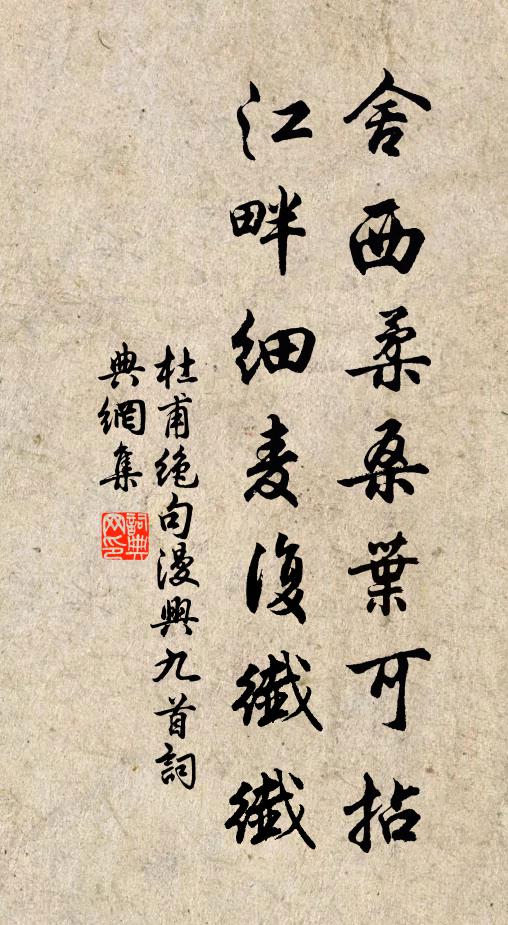 舍西柔桑葉可拈
江畔細麦復纖纖
杜甫絶句漫興九首詞
典網集
詞典
网印